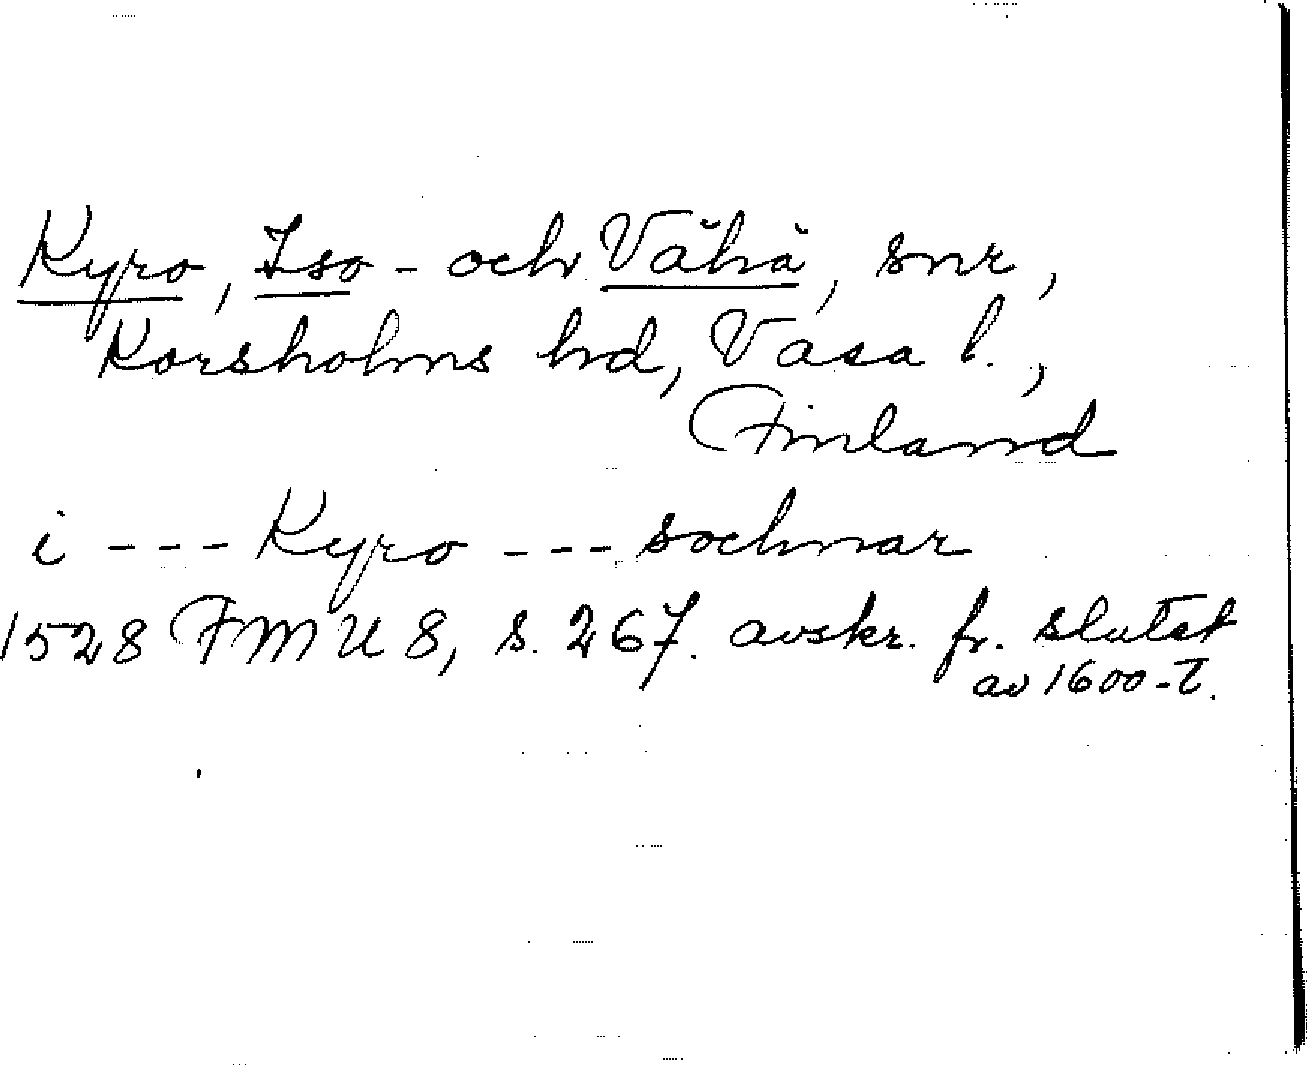 Kyro, Iso- och Vähä, snr,
Korsholms hd, Vasa l.,
Finland
i --- Kyro --- sochnar
1528 FMU 8, s. 267. avskr. fr. slutet
av 1600-t.